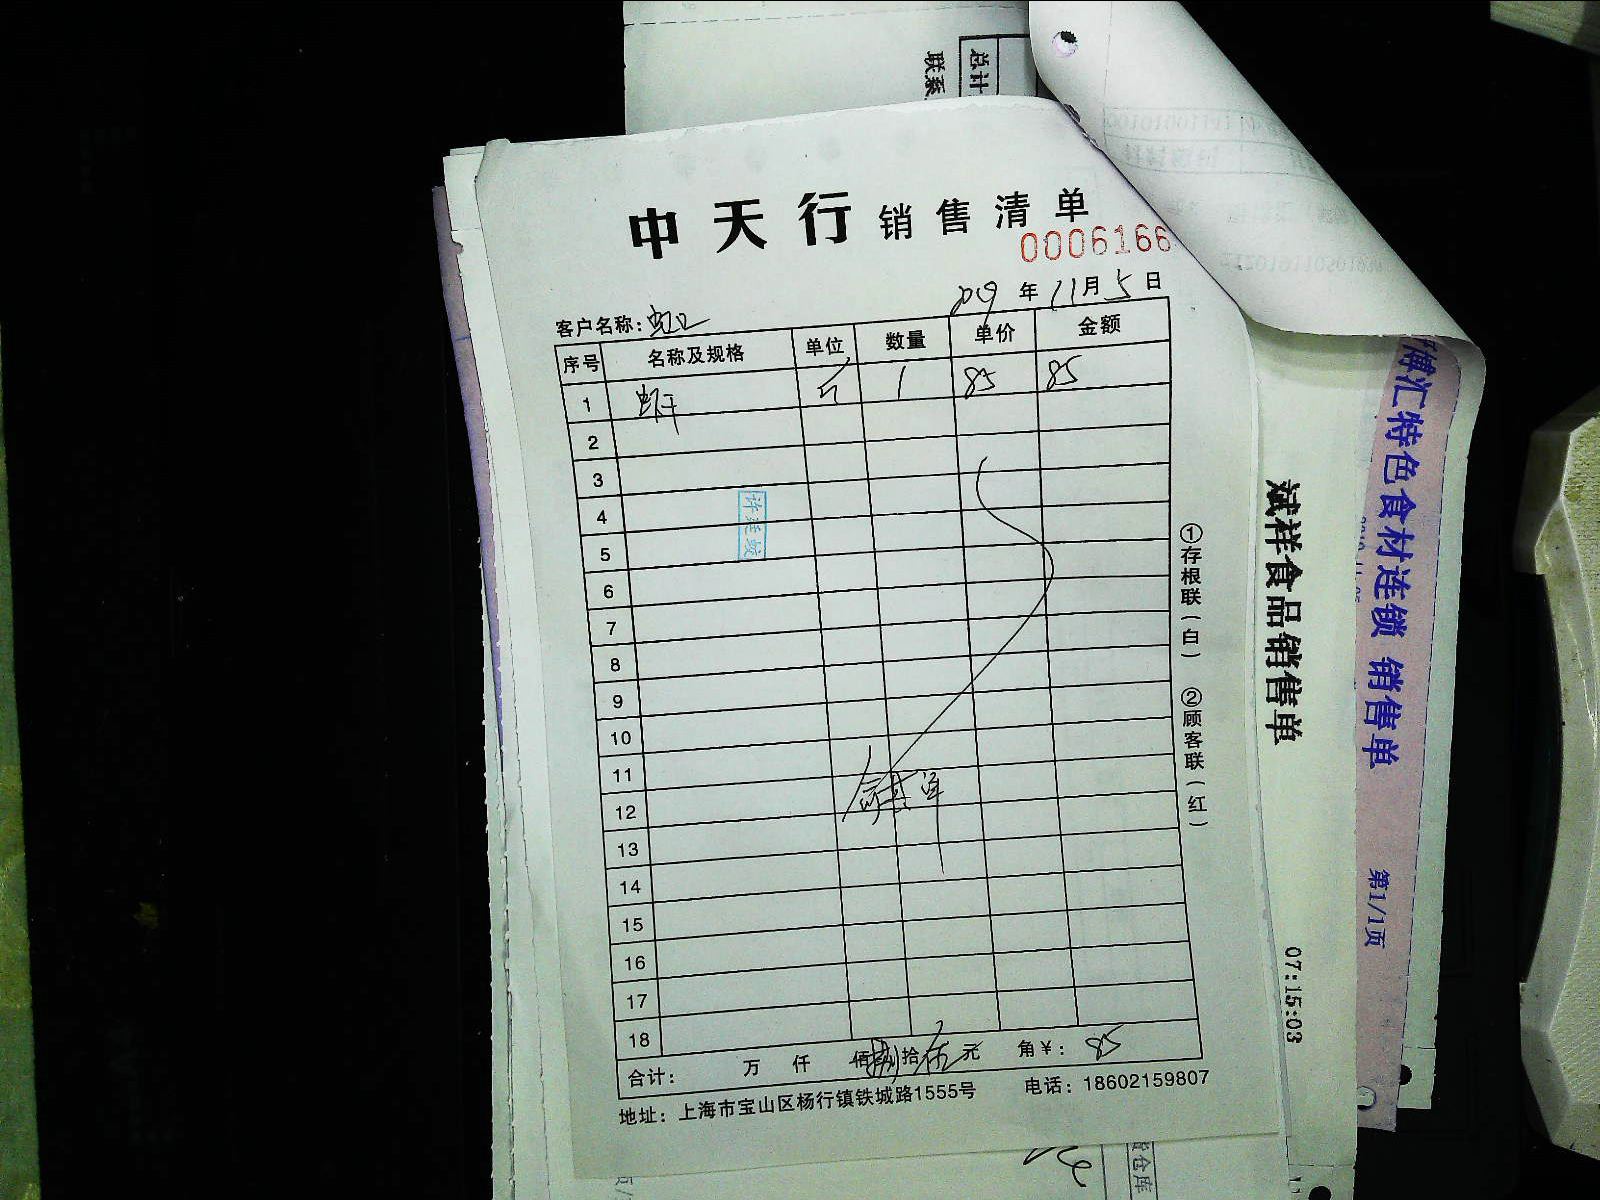 总计
联系
中天行销售清单
0006166
2019年11月5日
客户名称:虹口
序号 名称及规格 单位 数量 单价 金额
1 虾干 斤 1 85 85
2
3
4
5
6
7
8
9
10
11
12
13
14
15
16
17
18
合计: 万 仟 佰捌拾伍元 角¥: 85
地址: 上海市宝山区杨行镇铁城路1555号 电话: 18602159807
①存根联(白) ②顾客联(红)
斌祥食品销售单
07:15:03
博汇特色食材连锁 销售单
第1/1页
仓库